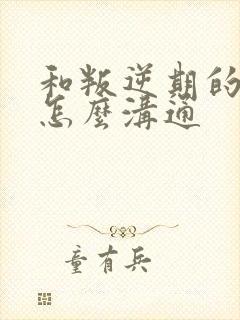 和叛逆期的
怎麼溝通
童有兵